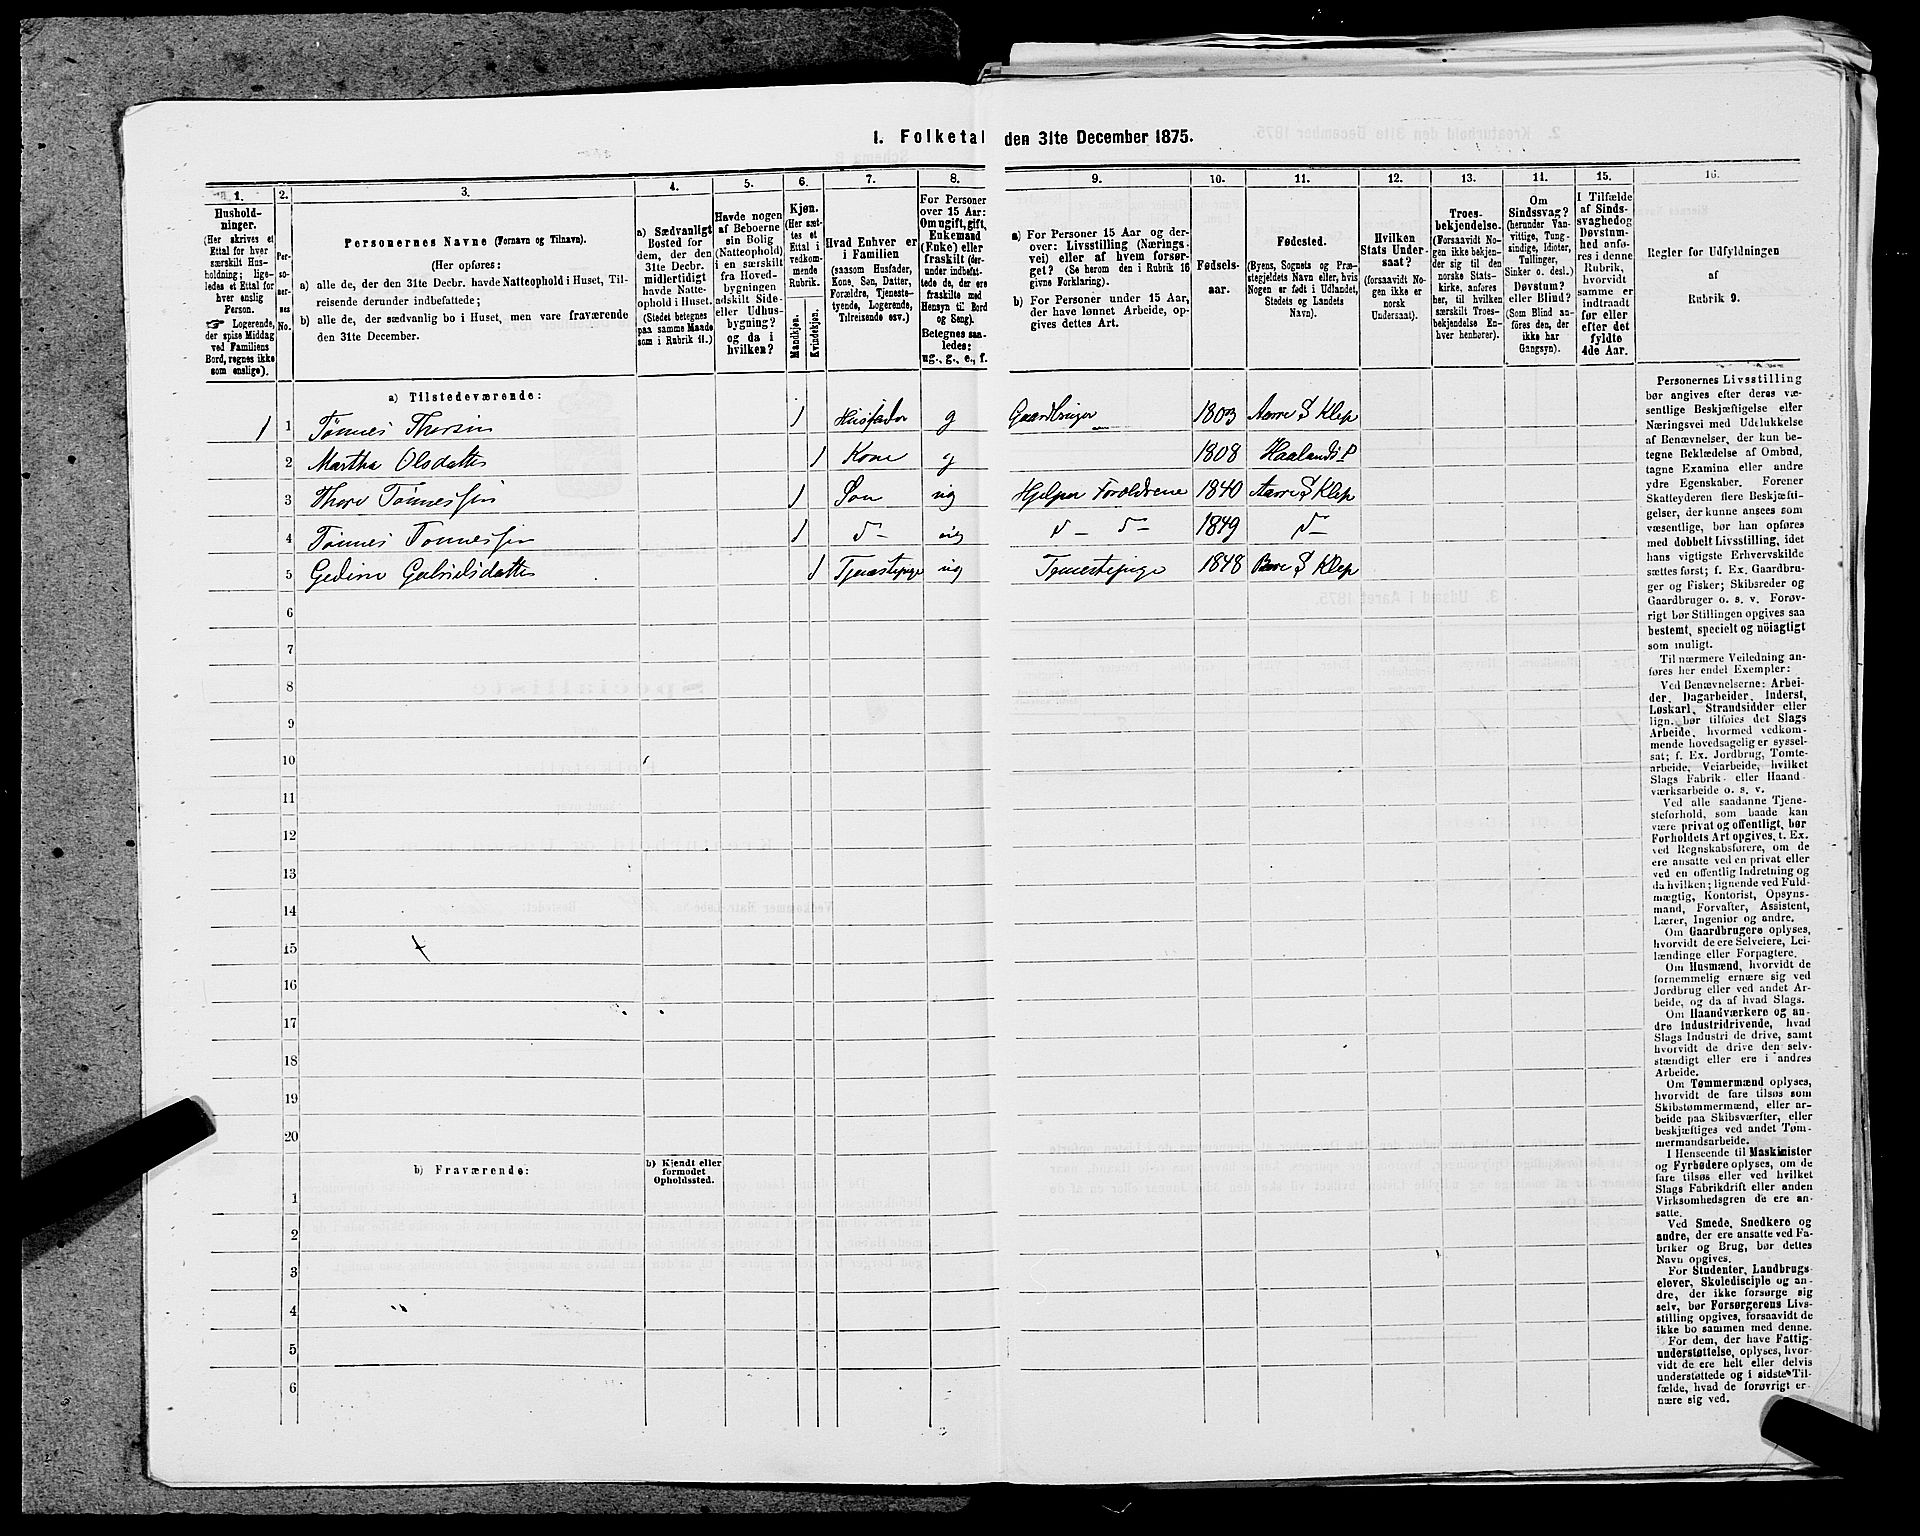 1. Folketal den 31te December 1875.
1. 2. 3. 4. 5. 6. 7. 8. 9. 10. 11. 12. 13. 11. 15. 16.
Hushold-
ninger.
(Her skrives et
Ettal for hver
særskilt Hus-
holdning; lige-
ledes et Ettal for
hver enslig
Person.
☞ Logerende,
der spise Middag
ved Familiens
Bord, regnes ikke
som enslige).
Per-
so-
ner-
nes
No.
Personernes Navne (Fornavn og Tilnavn).
(Her opføres:
a) alle de, der den 31te Decbr. havde Natteophold i Huset, Til-
reisende derunder indbefattede;
b) alle de, der sædvanlig bo i Huset, men vare fraværende
den 31te December.
a) Sædvanligt
Bosted for
dem, der den
31te Decbr.
midlertidigt
havde Natte-
ophold i Huset.
(Stedet betegnes
paa samme Maade
som i Rubrik 11.)
Havde nogen
af Beboerne
sin Bolig
(Natteophold)
i en særskilt
fra Hoved-
bygningen
adskilt Side-
eller Udhus-
bygning?
og da i
hvilken?
Kjøn.
(Her sæt-
tes et
Ettal i
vedkom-
mende
Rubrik.
Mandkjøn.
Kvindekjøn.
Hvad Enhver er
i Familien
(saasom Husfader,
Kone, Søn, Datter,
Forældre, Tjeneste-
tyende, Logerende,
Tilreisende osv.)
For Personer
over 15 Aar:
Om ugift, gift,
Enkemand
(Enke) eller
fraskilt (der-
under indbefat-
tede de, der ere
fraskilte med
Hensyn til Bord
og Seng).
Betegnes saa-
ledes:
ug., g., e., f.
a) For Personer 15 Aar og der-
over: Livsstilling (Nærings-
vei) eller af hvem forsør-
get? (Se herom den i Rubrik 16
givne Forklaring).
b) For Personer under 15 Aar,
der have lønnet Arbeide, op-
gives dettes Art.
Fødsels-
aar.
Fødested.
(Byens, Sognets og Præ-
stegjeldets Navn eller, hvis
Nogen er født i Udlandet,
Stedets og Landets
Navn).
Hvilken
Stats Under-
saat?
(forsaavidt No-
gen ikke er
norsk
Undersaat).
Troes-
bekjendelse.
(Forsaavidt No-
gen ikke bekjen-
der sig til den
norske Stats-
kirke, anføres
her, til hvilken
særskilt Troes-
bekjendelse En-
hver henhører).
Om
Sindssvag?
(herunder Van-
vittige, Tung-
sindige, Idioter,
Tullinger,
Sinker o. desl.)
Døvstum?
eller Blind?
(Som Blind an-
føres den, der
ikke har
Gangsyn).
I Tilfælde
af Sinds-
svaghed og
Døvstum-
hed anfø-
res i denne
Rubrik,
hvorvidt
samme er
indtraadt
før eller
efter det
fyldte
4de Aar.
Regler for Udfyldningen
af
Rubrik 9.
a) Tilstedeværende:
1 1 Tønnes Thorsen 1 Husfader g Gaardbruger 1803 Aarre S Klep
2 Martha Olsdatter 1 Kone g 1808 Haalands P
3 Thore Tønnessen 1 Søn ug Hjelper Forældrene 1840 Aarre S Klep
4 Tønnes Tønnessen 1 d- ug d - d - 1849 d-
5 Gabrielsdatter 1 Tjenestepige ug Tjenestepige 1848 Bore S Klep
6
7
8
9
10
11
12
13
14
15
16
17
18
19
20
b) Fraværende:
b) Kjendt eller
formodet
Opholdssted.
1
2
3
4
5
6
Personernes Livsstilling
bør angives efter deres væ-
sentlige Beskjæftigelse eller
Næringsvei med Udelukkelse
af Benævnelser, der kun be-
tegne Beklædelse af Ombud,
tagne Examina eller andre
ydre Egenskaber. Forener
Skatteyderen flere Beskjæfti-
gelser, der kunne ansees som
væsentlige, bør han opføres
med dobbelt Livsstilling, idet
hans vigtigste Erhvervskilde
sættes først; f. Ex. Gaardbru-
ger og Fisker; Skibsreder og
Gaardbruger o. s. v. Forøv-
rigt bør Stillingen opgives saa
bestemt, specielt og nöiagtigt
som muligt.
Til nærmere Veiledning an-
føres her endel Exempler:
Ved Benævnelserne: Arbei-
der, Dagarbeider, Inderst,
Løskarl, Strandsidder eller
lign. bør tilføies det Slags
Arbeide, hvormed vedkom-
mende hovedsagelig er syssel-
sat; f. Ex. Jordbrug, Tomte-
arbeide, Veiarbeide, hvilket
Slags Fabrik- eller Haand-
værksarbeide o. s. v.
Ved alle saadanne Tjene-
steforhold, som baade kan
være privat og offentligt, bør
Forholdets Art opgives, t. Ex.
ved Regnskabsførere, om de
ere ansatte ved en privat eller
ved en offentlig Indretning og
da hvilken; lignende ved Fuld-
mægtig, Kontorist, Opsyns-
mand, Forvalter, Assistent,
Lærer, Ingeniør og andre.
Om Gaardbrugere oplyses,
hvorvidt de ere Selveiere, Lei-
lændinge eller Forpagtere.
Om Husmænd, hvorvidt de
fornemmelig ernære sig ved
Jordbrug eller ved andet Ar-
beide, og da af hvad Slags.
Om Haandværkere og an-
dre Industridrivende, hvad
Slags Industri de drive, samt
hvorvidt de drive den selv-
stændigt eller ere i andres
Arbeide.
Om Tømmermænd oplyses,
hvorvidt de fare tilsøs som
Skibstømmermænd, eller ar-
beide paa Skibsværfter, eller
beskjæftiges ved andet Tøm-
mermandsarbeide.
I Henseende til Maskinister
og Fyrbødere oplyses, om de
fare tilsøs eller ved hvilket
Slags Fabrikdrift eller anden
Virksomhedsgren de ere an-
satte.
Ved Smede, Snedkere og
andre, der ere ansatte ved Fa-
briker og Brug, bør dettes
Navn opgives.
For Studenter, Landbrugs-
elever, Skoledisciple og an-
dre, der ikke forsørge sig
selv, bør Forsørgerens Livs-
stilling opgives, forsaavidt de
ikke bo sammen med denne.
For dem, der have Fattig-
understøttelse, oplyses, hvor-
vidt de ere helt eller delvis
understøttede og i sidste Til-
fælde, hvad de forøvrigt er-
nære sig ved.